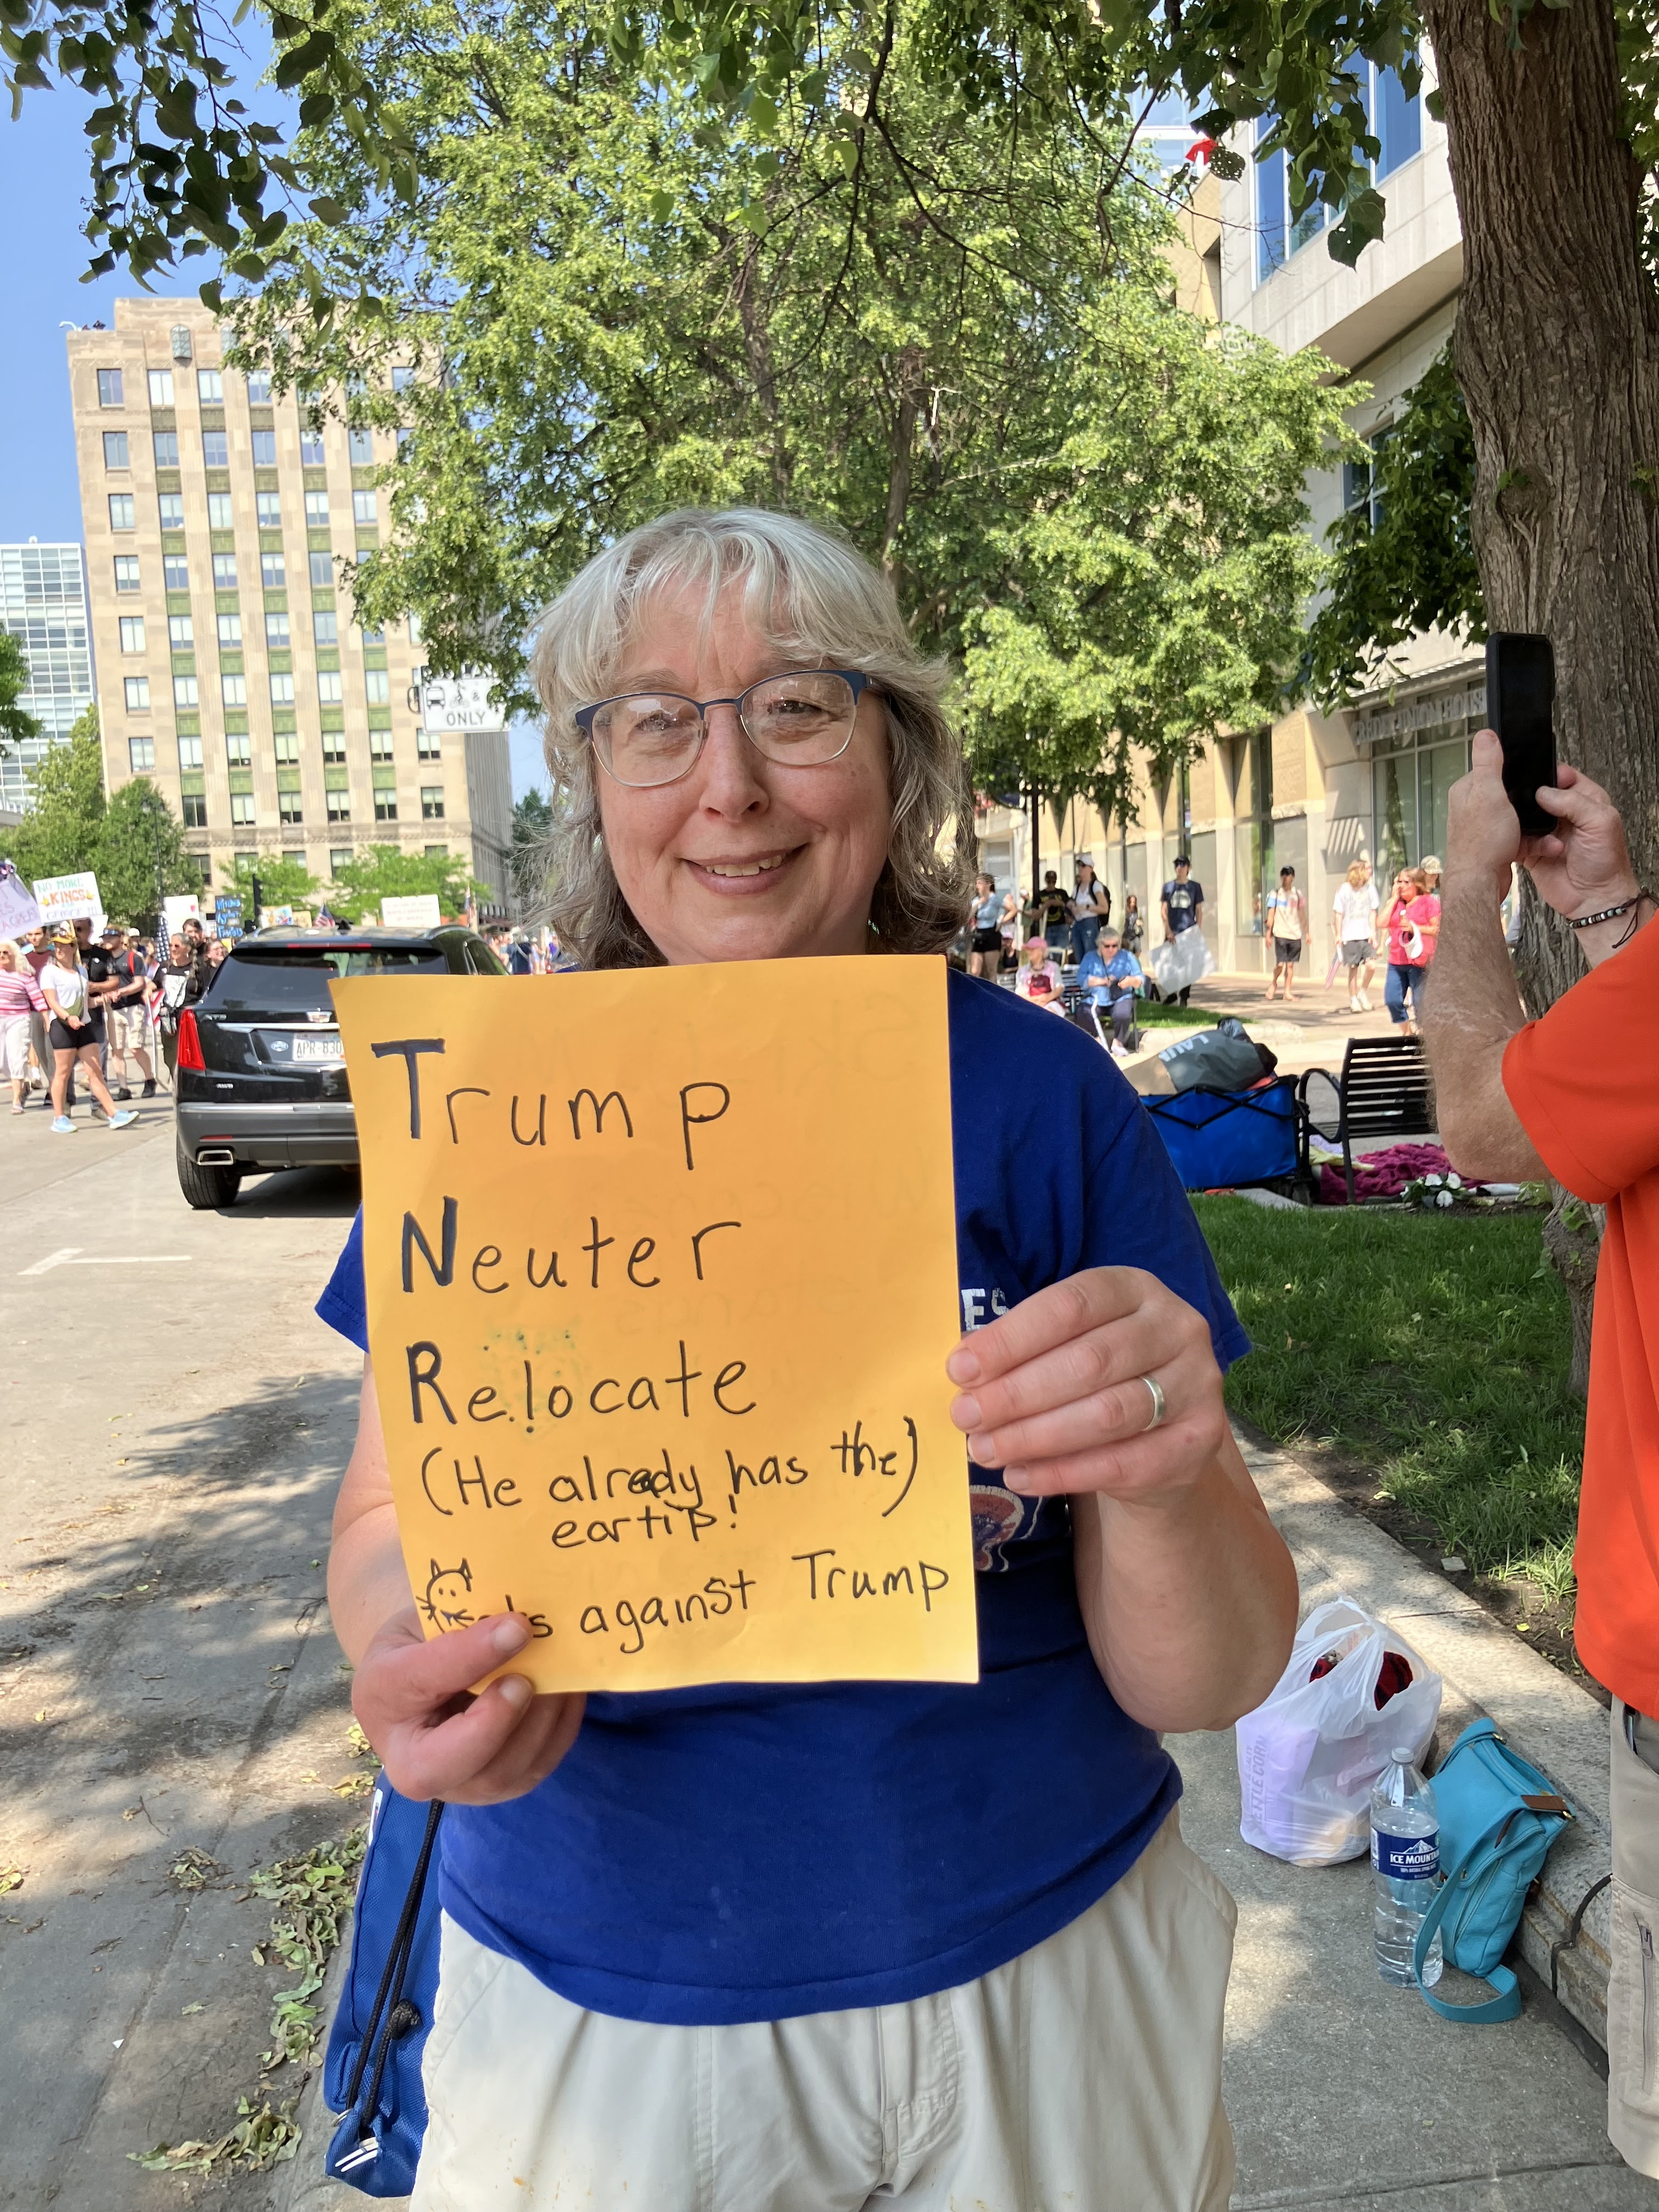 Trump
Neuter
Relocate
(He already has the)
eartip!
against Trump
ONLY
NO MORE
KINGS
ICE MOUNTAIN